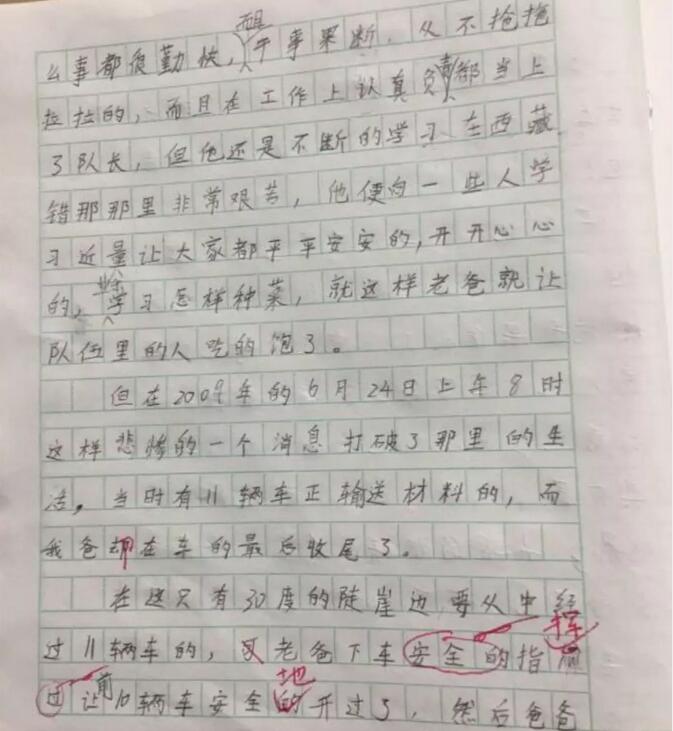 么事都很勤快，而且干事果断，从不拖拖
拉拉的，而且在工作上认真负责都当上
了队长，但他还是不断的学习在西藏
错那那里非常艰苦，他便向一些人学
习近量让大家都平平安安的，开开心心
的，学习怎样种菜，就这样老爸就让
队伍里的人吃的饱了。
但在2009年的6月24日上午8时
这样悲惨的一个消息打破了那里的生
活，当时有11辆车正输送材料的，而
我爸却在车的最后收尾了。
在这只有30度的陡崖边要从中经
过11辆车的，老爸下车安全的指挥
过让前10辆车安全地的开过了，然后爸爸